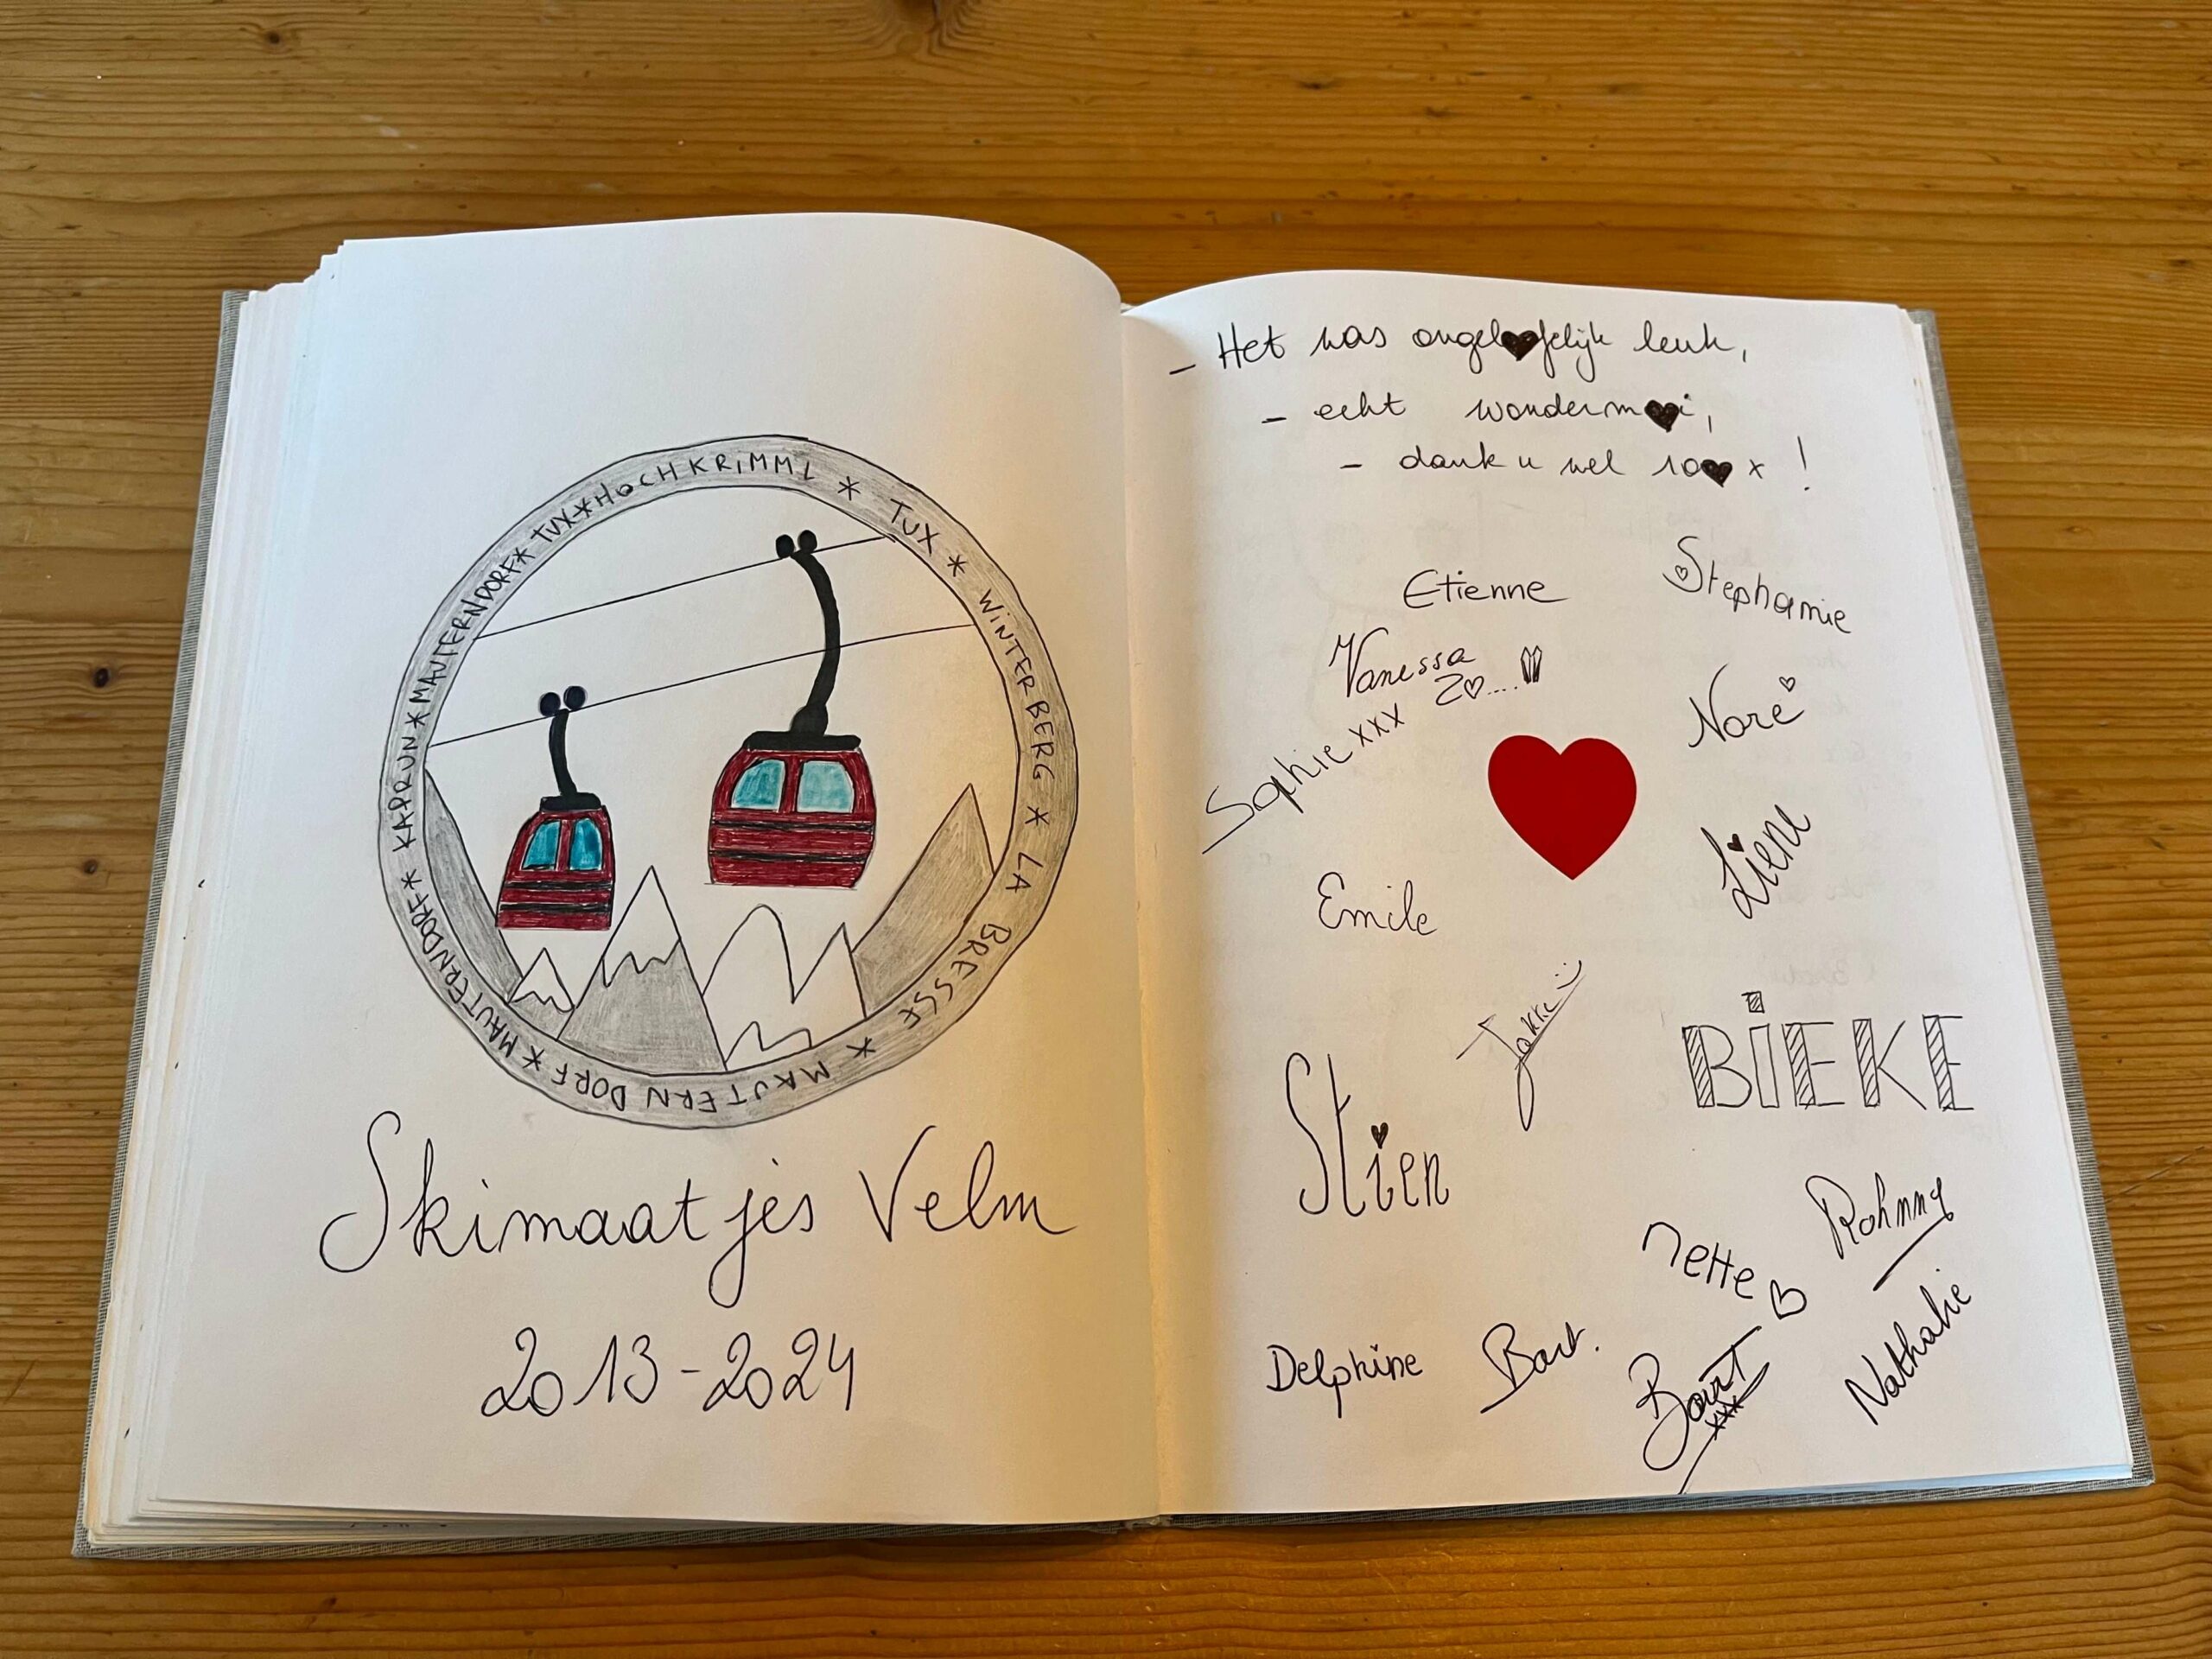 KAPRUN * MAUTERNDORF * TUX * HOCHKRIMML * TUX * WINTERBERG * LA BRESSE * MAUTERNDORF * MAUTERNDORF *
Skimaatjes Velm
2013-2024
- Het was ongel♥felijk leuk,
- echt wonderm♥i,
- dank u wel 10♥x!
Etienne
Stephanie
Vanessa
Zo....
Noré
Sophie xxx
Liene
Emile
Jakke :)
BIEKE
Stien
Rohnny
Nette
Nathalie
Delphine
Bart.
Bart
xxx